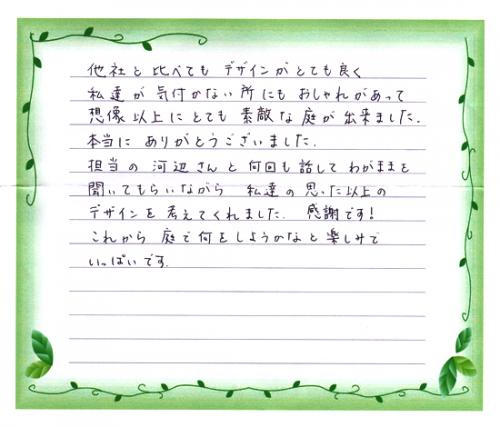 他社と比べても デザインがとても良く
私達が気付かない所にもおしゃれがあって
想像以上にとても 素敵な庭が出来ました.
本当に ありがとうございました.
担当の 河辺さんと何回も話して わがままを
聞いてもらいながら 私達の思った以上の
デザインを考えてくれました. 感謝です!
これから 庭で何をしようかなと楽しみで
いっぱいです.